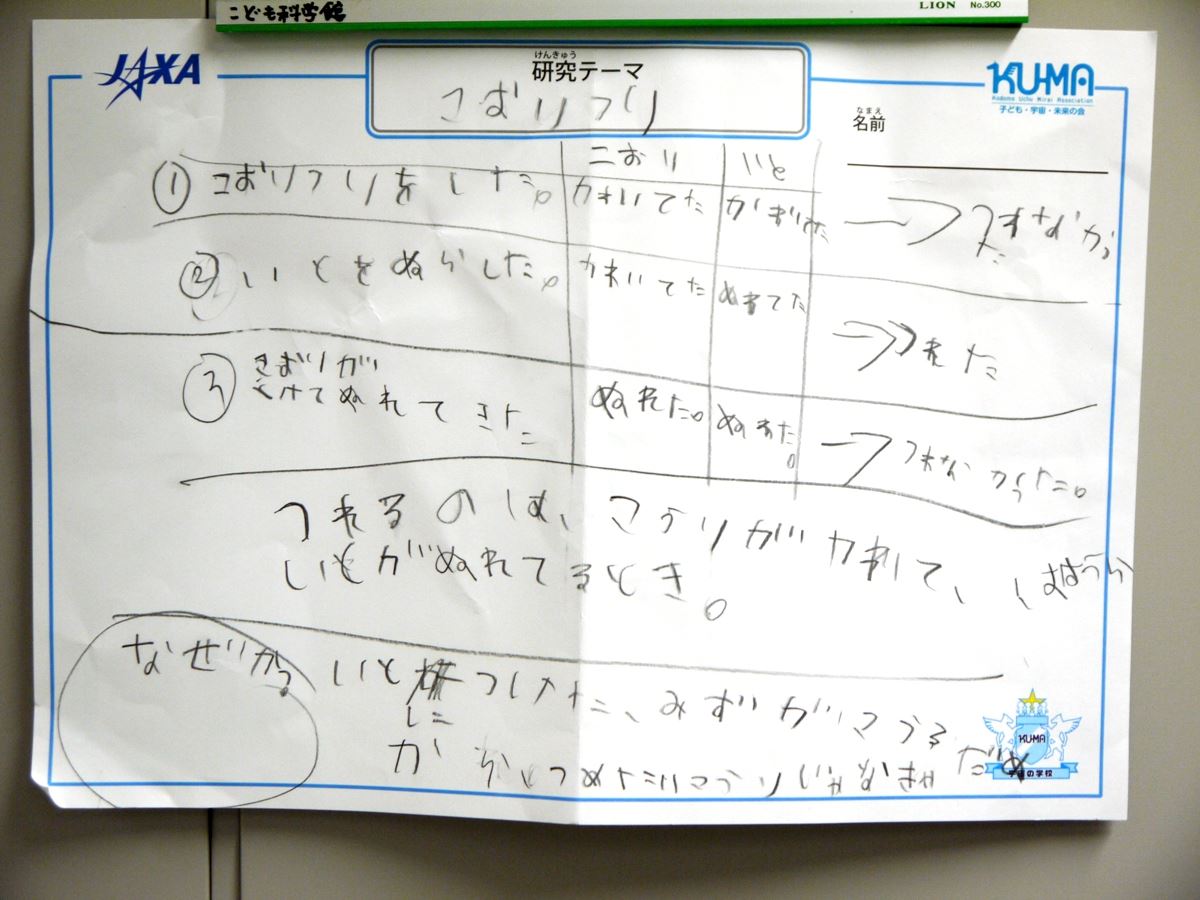 こども科学館
LION No.300
JAXA
けんきゅう
研究テーマ
こおりつり
KU-MA
Kodomo Uchu Mirai Association
子ども・宇宙・未来の会
なまえ
名前
こおり いと
① こおりつりをした。 かわいてた かわいてた → つれなかった
② いとをぬらした。 かわいてた ぬれてた → つれた
③ こおりが
とけてぬれてきた ぬれた。 ぬれた。 → つれなかった。
つれるのは、こうりがかわいて、
いとがぬれてるとき。
なぜか? いと つけた、みずがこうる
に
が つめたいこうりじゃなきゃ だめ
KU-MA
宇宙の学校